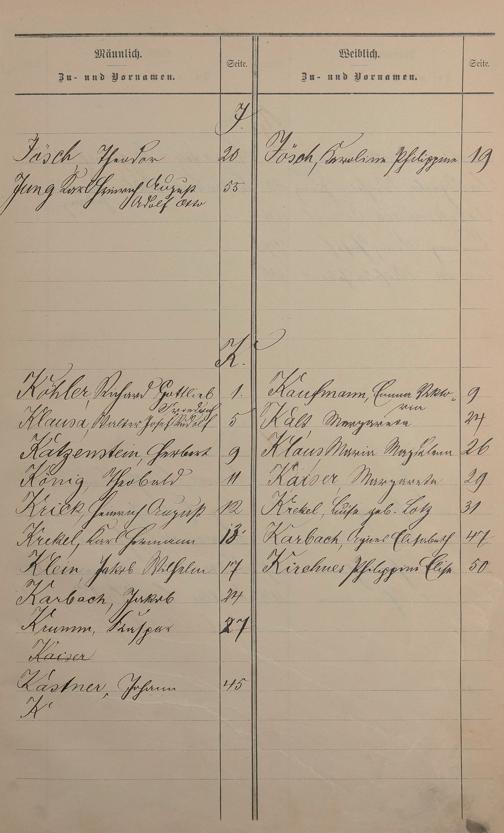 Männlich.
Zu- und Vornamen.
Seite.
Weiblich.
Zu- und Vornamen.
Seite.
J.
Jösch, Theodor 20
Jösch, Karoline Philippine 19
Jung Karl Heinrich August 55
Adolf Otto
K.
Köhler, Richard Gottlieb 1.
Kaufmann, Emma Vikto- 9
Friedrich
ria
Klausa, Walter Josef Rudolf 5
Kalt Margareta 24
Katzenstein, Herbert 9
Klaus Maria Magdalena 26
König, Theobald 11
Kaiser, Margareta 29
Krick, Heinrich August 12
Krekel, Luise geb. Lotz 31
Krekel, Karl Hermann 13
Karbach, Elisabeth 47
Klein, Jakob Wilhelm 17
Kirchner Philippine Elise 50
Karbach, Jakob 24
Krumm, Kaspar 27
Kaiser
Kastner, Johann 45
K